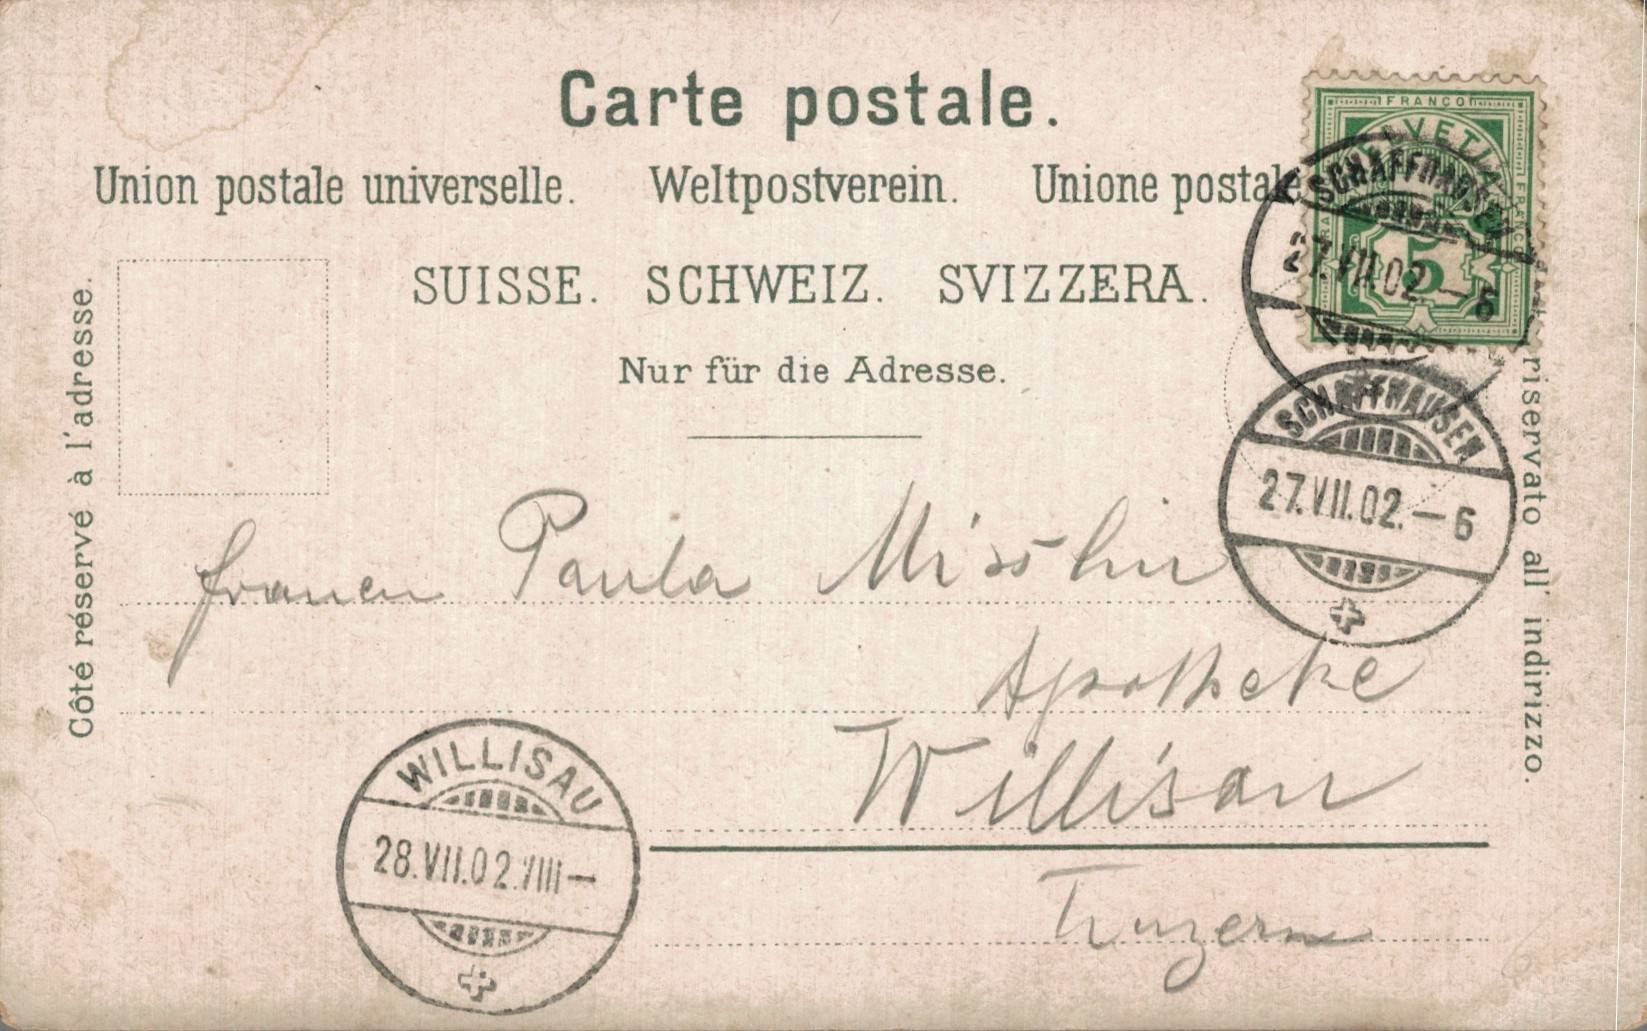 Carte postale.
Union postale universelle. Weltpostverein. Unione postale
SUISSE. SCHWEIZ. SVIZZERA.
Nur für die Adresse.
Côté réservé à l'adresse.
riservato all' indirizzo.
FRANCO
HELVETIA
FRANCO
5
SCHAFFHAUSEN
27.VII.02.–6
SCHAFFHAUSEN
27.VII.02.–6
Paula Misslin
Apotheke
Willisau
Luzern
WILLISAU
28.VII.02.VIII–